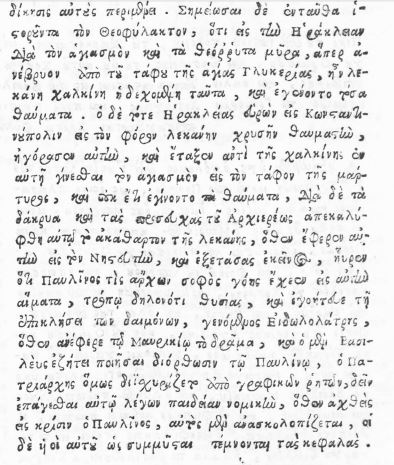 δίκησις αὐτῆς περιμένει. Σημείωσαι δὲ ἐνταῦθα ἱ-
στοροῦντα τὸν Θεοφύλακτον, ὅτι εἰς τὴν Ἡράκλειαν
διὰ τὸν ἁγιασμὸν καὶ τὰ θεόῤῥυτα μύρα, ἅπερ ἀ-
νέβρυον ἀπὸ τοῦ τάφου τῆς ἁγίας Γλυκερίας, ἦν λε-
κάνη χαλκίνη ἡ δεχομένη ταῦτα, καὶ ἐγίνοντο
θαύματα. ὁ δὲ τότε Ἡρακλείας εὑρὼν εἰς Κωνσταντι-
νούπολιν εἰς τὸν φόρον λεκάνην χρυσῆν θαυμαστὴν,
ἠγόρασεν αὐτὴν, καὶ ἔταξεν ἀντὶ τῆς χαλκίνης ἐν
αὐτῇ γίνεσθαι τὸν ἁγιασμὸν εἰς τὸν τάφον τῆς μάρ-
τυρος, καὶ οὐκ ἔτι ἐγίνοντο τὰ θαύματα, διὰ δὲ τὰ
δάκρυα καὶ τὰς προσευχὰς τοῦ Ἀρχιερέως ἀπεκαλύ-
φθη αὐτῷ τὸ ἀκάθαρτον τῆς λεκάνης, ὅθεν ἔφερον αὐ-
τὴν εἰς τὸν Νηστευτὴν, καὶ ἐξετάσας ἐκεῖνος, ηὗρον
ὅτι Παυλῖνος τὶς ἄρχων σοφὸς γόης ἔχεεν εἰς αὐτὴν
αἵματα, τρόπῳ δηλονότι θυσίας, καὶ ἐγοήτευε τῇ
ἐπικλήσει τῶν δαιμόνων, γενόμενος Εἰδωλολάτρης,
ὅθεν ἀνέφερε τῷ Μαυρικίῳ τὸ δράμα, καὶ ὁ μὲν Βασι-
λεὺς ἐζήτει ποιῆσαι διόρθωσιν τῷ Παυλίνῳ, ὁ Πα-
τριάρχης ὅμως διϊσχυρίζετο ἀπὸ γραφικῶν ῥητῶν, δεῖν
ἐπάγεσθαι αὐτῷ λέγων παιδείαν νομικὴν, ὅθεν ἀχθεὶς
εἰς κρίσιν ὁ Παυλῖνος, αὐτὸς μὲν ἀνασκολοπίζεται, οἱ
δὲ υἱοὶ αὐτοῦ ὡς συμμύσται τέμνονται τὰς κεφαλάς.